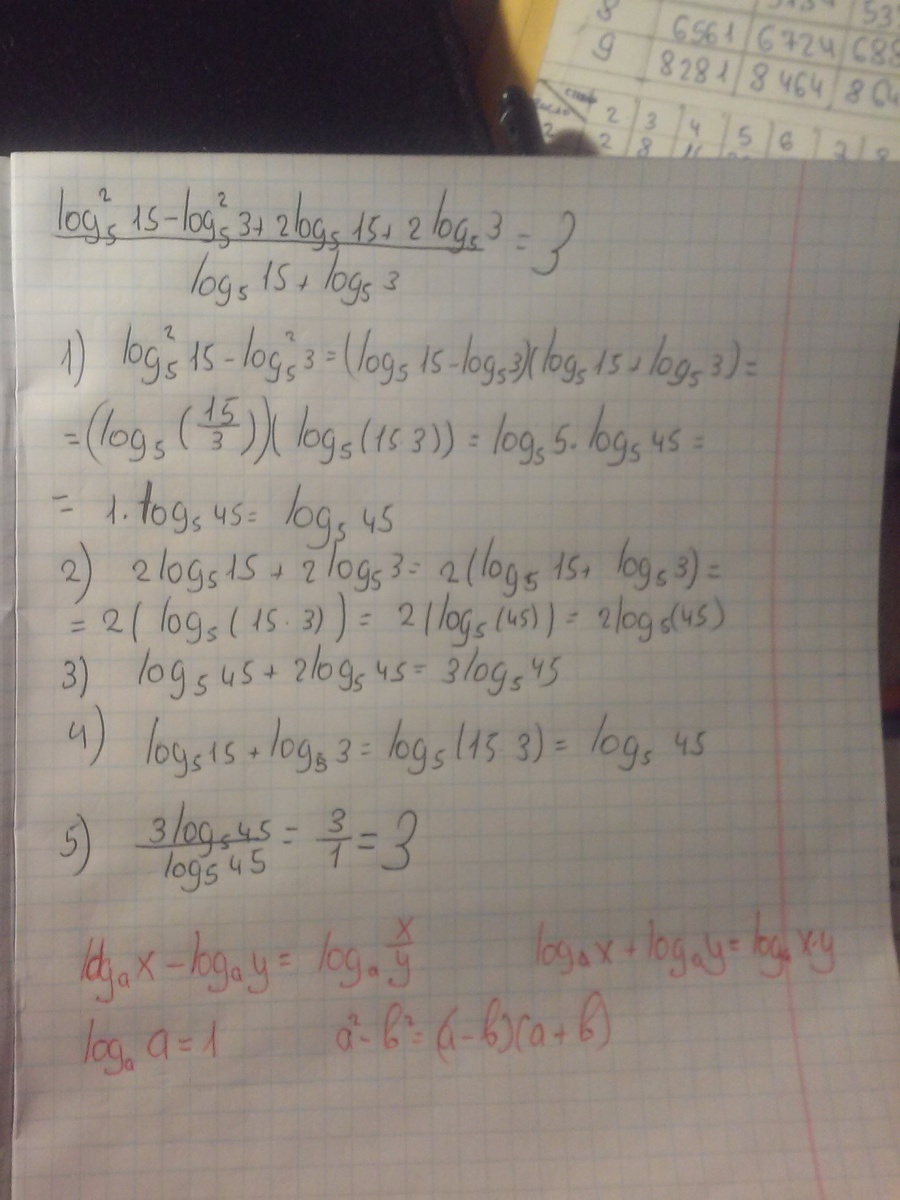 8 | 6561 | 6724 | 688
9 | 8281 | 8464 | 864
2 | 3 | 4 | 5 | 6 | 7 | 8
2 | 2 | 8
log₅² 15 - log₅² 3 + 2log₅ 15 + 2 log₅ 3 = 3
log₅ 15 + log₅ 3
1) log₅² 15 - log₅² 3 = (log₅ 15 - log₅ 3)(log₅ 15 + log₅ 3) =
= (log₅ (15/3))(log₅ (15 3)) = log₅ 5 · log₅ 45 =
= 1 · log₅ 45 = log₅ 45
2) 2log₅ 15 + 2log₅ 3 = 2(log₅ 15 + log₅ 3) =
= 2(log₅ (15 · 3)) = 2(log₅ (45)) = 2log₅ (45)
3) log₅ 45 + 2log₅ 45 = 3log₅ 45
4) log₅ 15 + log₅ 3 = log₅ (15 3) = log₅ 45
5) 3log₅ 45 / log₅ 45 = 3/1 = 3
logₐ x - logₐ y = logₐ x/y   logₐ x + logₐ y = logₐ x·y
logₐ a = 1   a² - b² = (a - b)(a + b)